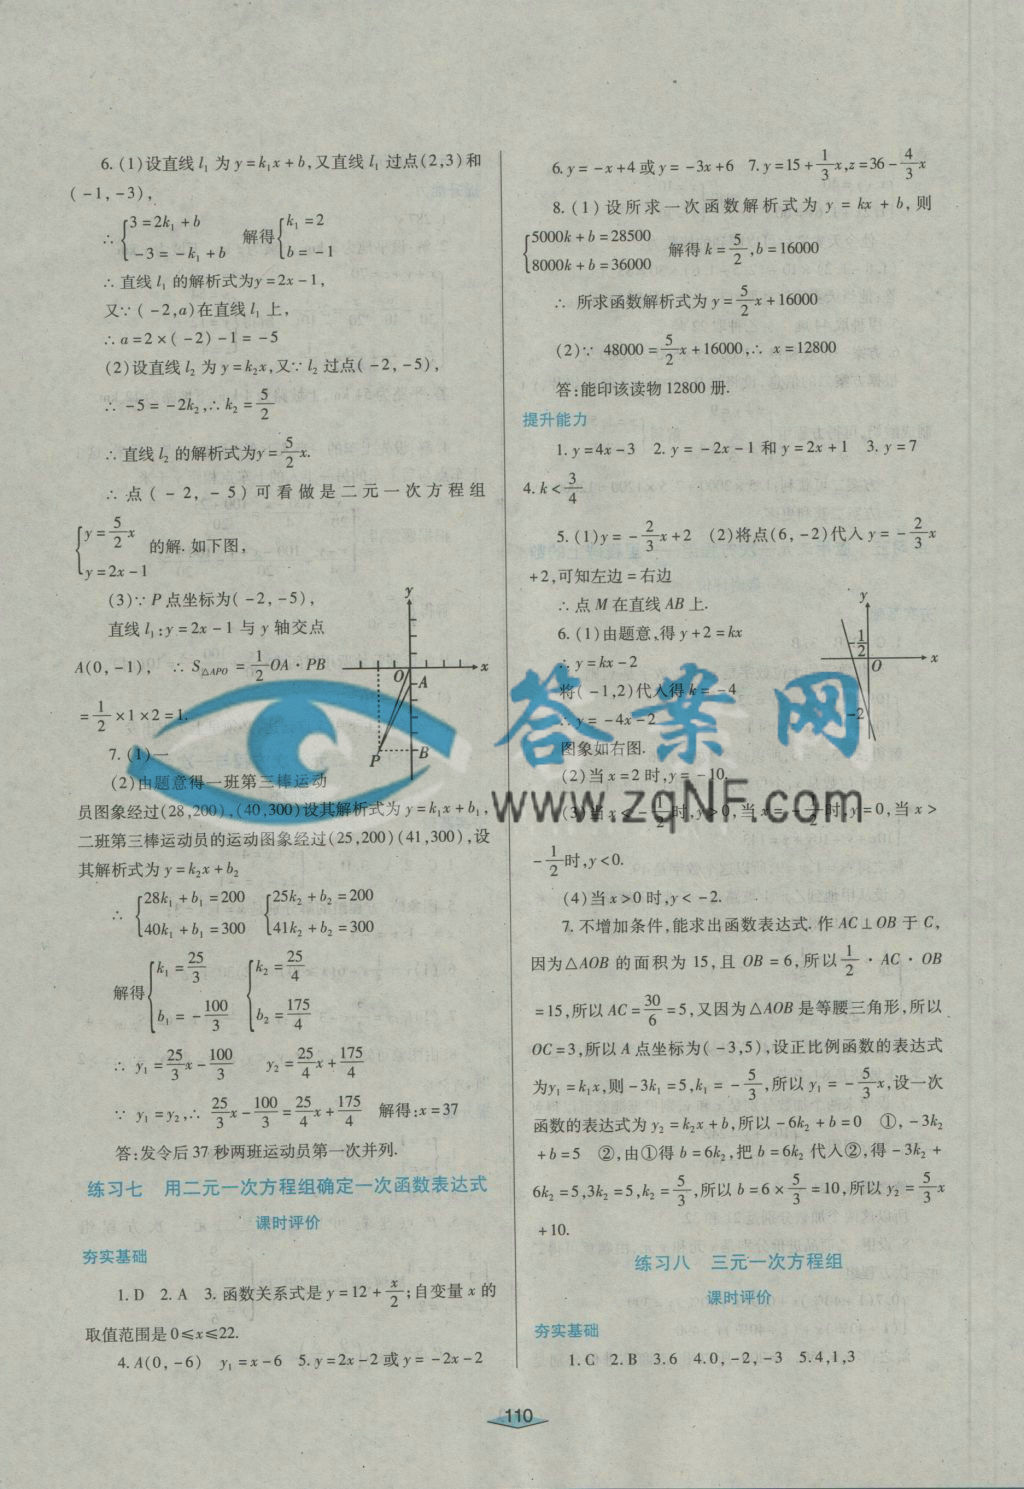 6.(1)设直线 l₁ 为 y=k₁x+b,又直线 l₁ 过点(2,3)和
(-1,-3),
∴ {3=2k₁+b 解得 {k₁=2
-3=-k₁+b b=-1
∴直线 l₁ 的解析式为y=2x-1,
又∵(-2,a)在直线 l₁ 上,
∴a=2×(-2)-1=-5
(2)设直线 l₂ 为 y=k₂x,又∵ l₂ 过点(-2,-5),
∴ -5=-2k₂,∴k₂=5/2
∴直线 l₂ 的解析式为y=5/2x.
∴点(-2,-5)可看做是二元一次方程组
{y=5/2x
y=2x-1 的解.如下图,
(3)∵P 点坐标为(-2,-5),
直线 l₁:y=2x-1 与 y 轴交点
A(0,-1), ∴S△APO=1/2OA·PB
=1/2×1×2=1.
y
O
x
A
P
B
7.(1)一
(2)由题意得一班第三棒运动
员图象经过(28,200),(40,300)设其解析式为 y=k₁x+b₁,
二班第三棒运动员的运动图象经过(25,200)(41,300),设
其解析式为 y=k₂x+b₂
∴ {28k₁+b₁=200 {25k₂+b₂=200
40k₁+b₁=300 41k₂+b₂=300
解得 {k₁=25/3 {k₂=25/4
b₁=-100/3 b₂=175/4
∴ y₁=25/3x-100/3 y₂=25/4x+175/4
∵ y₁=y₂,∴ 25/3x-100/3=25/4x+175/4 解得:x=37
答:发令后 37 秒两班运动员第一次并列.
练习七 用二元一次方程组确定一次函数表达式
课时评价
夯实基础
1.D 2.A 3.函数关系式是 y=12+x/2;自变量 x 的
取值范围是 0≤x≤22.
4.A(0,-6) y₁=x-6 5.y=2x-2 或 y=-2x-2
6.y=-x+4 或 y=-3x+6 7.y=15+1/3x,z=36-4/3x
8.(1)设所求一次函数解析式为 y=kx+b,则
{5000k+b=28500
8000k+b=36000 解得 k=5/2,b=16000
∴ 所求函数解析式为 y=5/2x+16000
(2)∵ 48000=5/2x+16000,∴ x=12800
答:能印该读物 12800 册.
提升能力
1.y=4x-3 2.y=-2x-1 和 y=2x+1 3.y=7
4.k<3/4
5.(1)y=-2/3x+2 (2)将点(6,-2)代入 y=-2/3x
+2,可知左边=右边
∴点 M 在直线 AB 上.
6.(1)由题意,得 y+2=kx
∴y=kx-2
将(-1,2)代入得 k=-4
∴y=-4x-2
图象如右图.
y
-1/2
O
x
-2
(2)当 x=2 时,y=-10.
(3)当 x<-1/2时,y>0,当 x=-1/2时,y=0,当 x>
-1/2时,y<0.
(4)当 x>0 时,y<-2.
7.不增加条件,能求出函数表达式.作 AC⊥OB 于 C,
因为△AOB 的面积为 15,且 OB=6,所以1/2·AC·OB
=15,所以 AC=30/6=5,又因为△AOB 是等腰三角形,所以
OC=3,所以 A 点坐标为(-3,5),设正比例函数的表达式
为y₁=k₁x,则-3k₁=5,k₁=-5/3,所以 y₁=-5/3x,设一次
函数的表达式为 y₂=k₂x+b,所以-6k₂+b=0 ①,-3k₂
+b=5 ②,由①得 b=6k₂,把 b=6k₂ 代入②,得-3k₂+
6k₂=5,3k₂=5,k₂=5/3,所以 b=6×5/3=10,所以 y₂=5/3x
+10.
练习八 三元一次方程组
课时评价
夯实基础
1.C 2.B 3.6 4.0,-2,-3 5.4,1,3
110
答案网
www.zqNF.com